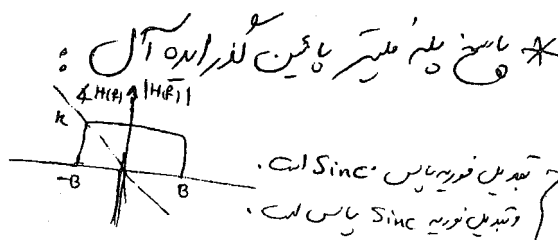 * پاسخ پله فیلتر پائین گذر ایده آل :
∡H(f) |H(f)|
k
-B B
تبدیل فوریه پالس Sinc است.
و تبدیل فوریه Sinc پالس است.